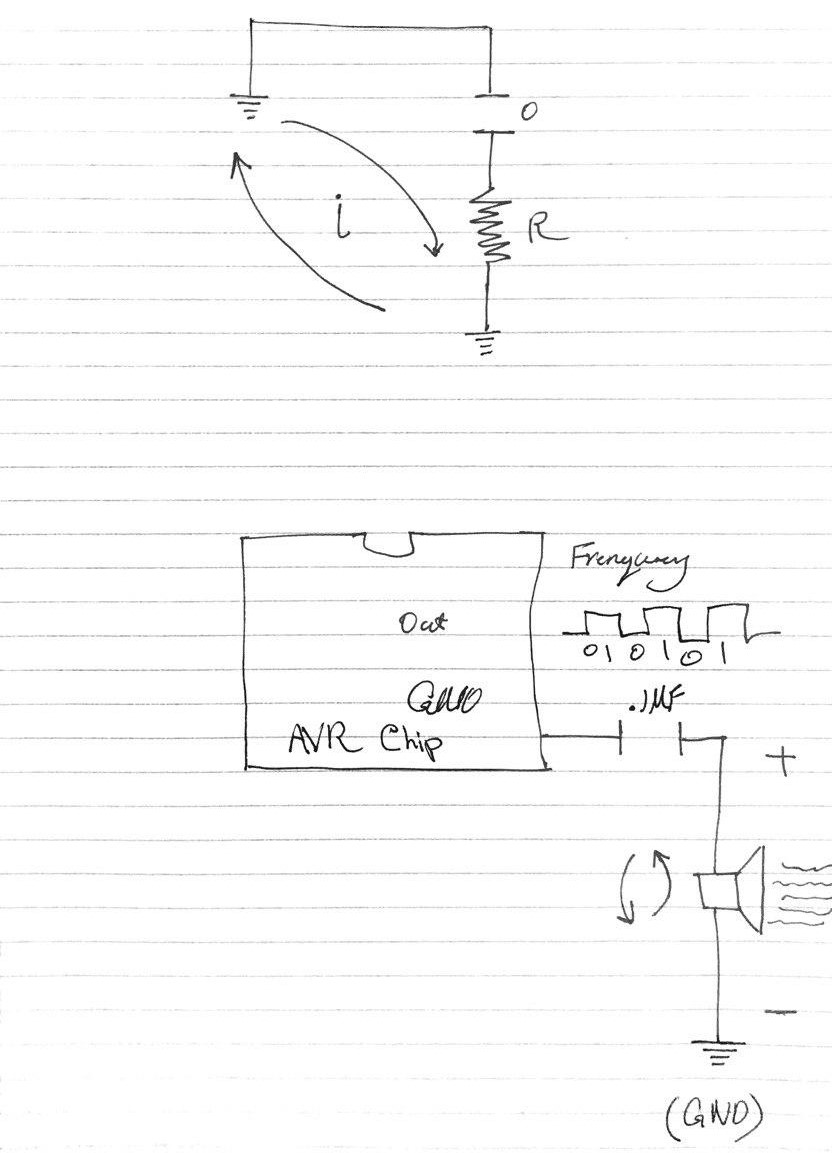 0
i
R
Frenquency
Out
0 1 0 1 0 1
.1MF
AVR Chip
+
-
(GND)